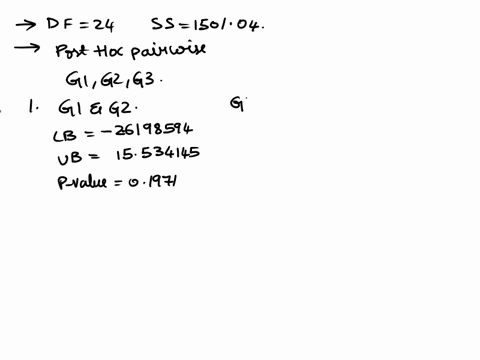 → DF = 24 SS = 1501.04.
→ Post Hoc pairwise
G1, G2, G3.
1. G1 & G2. G
LB = -26198594
UB = 15.534145
P-value = 0.1971